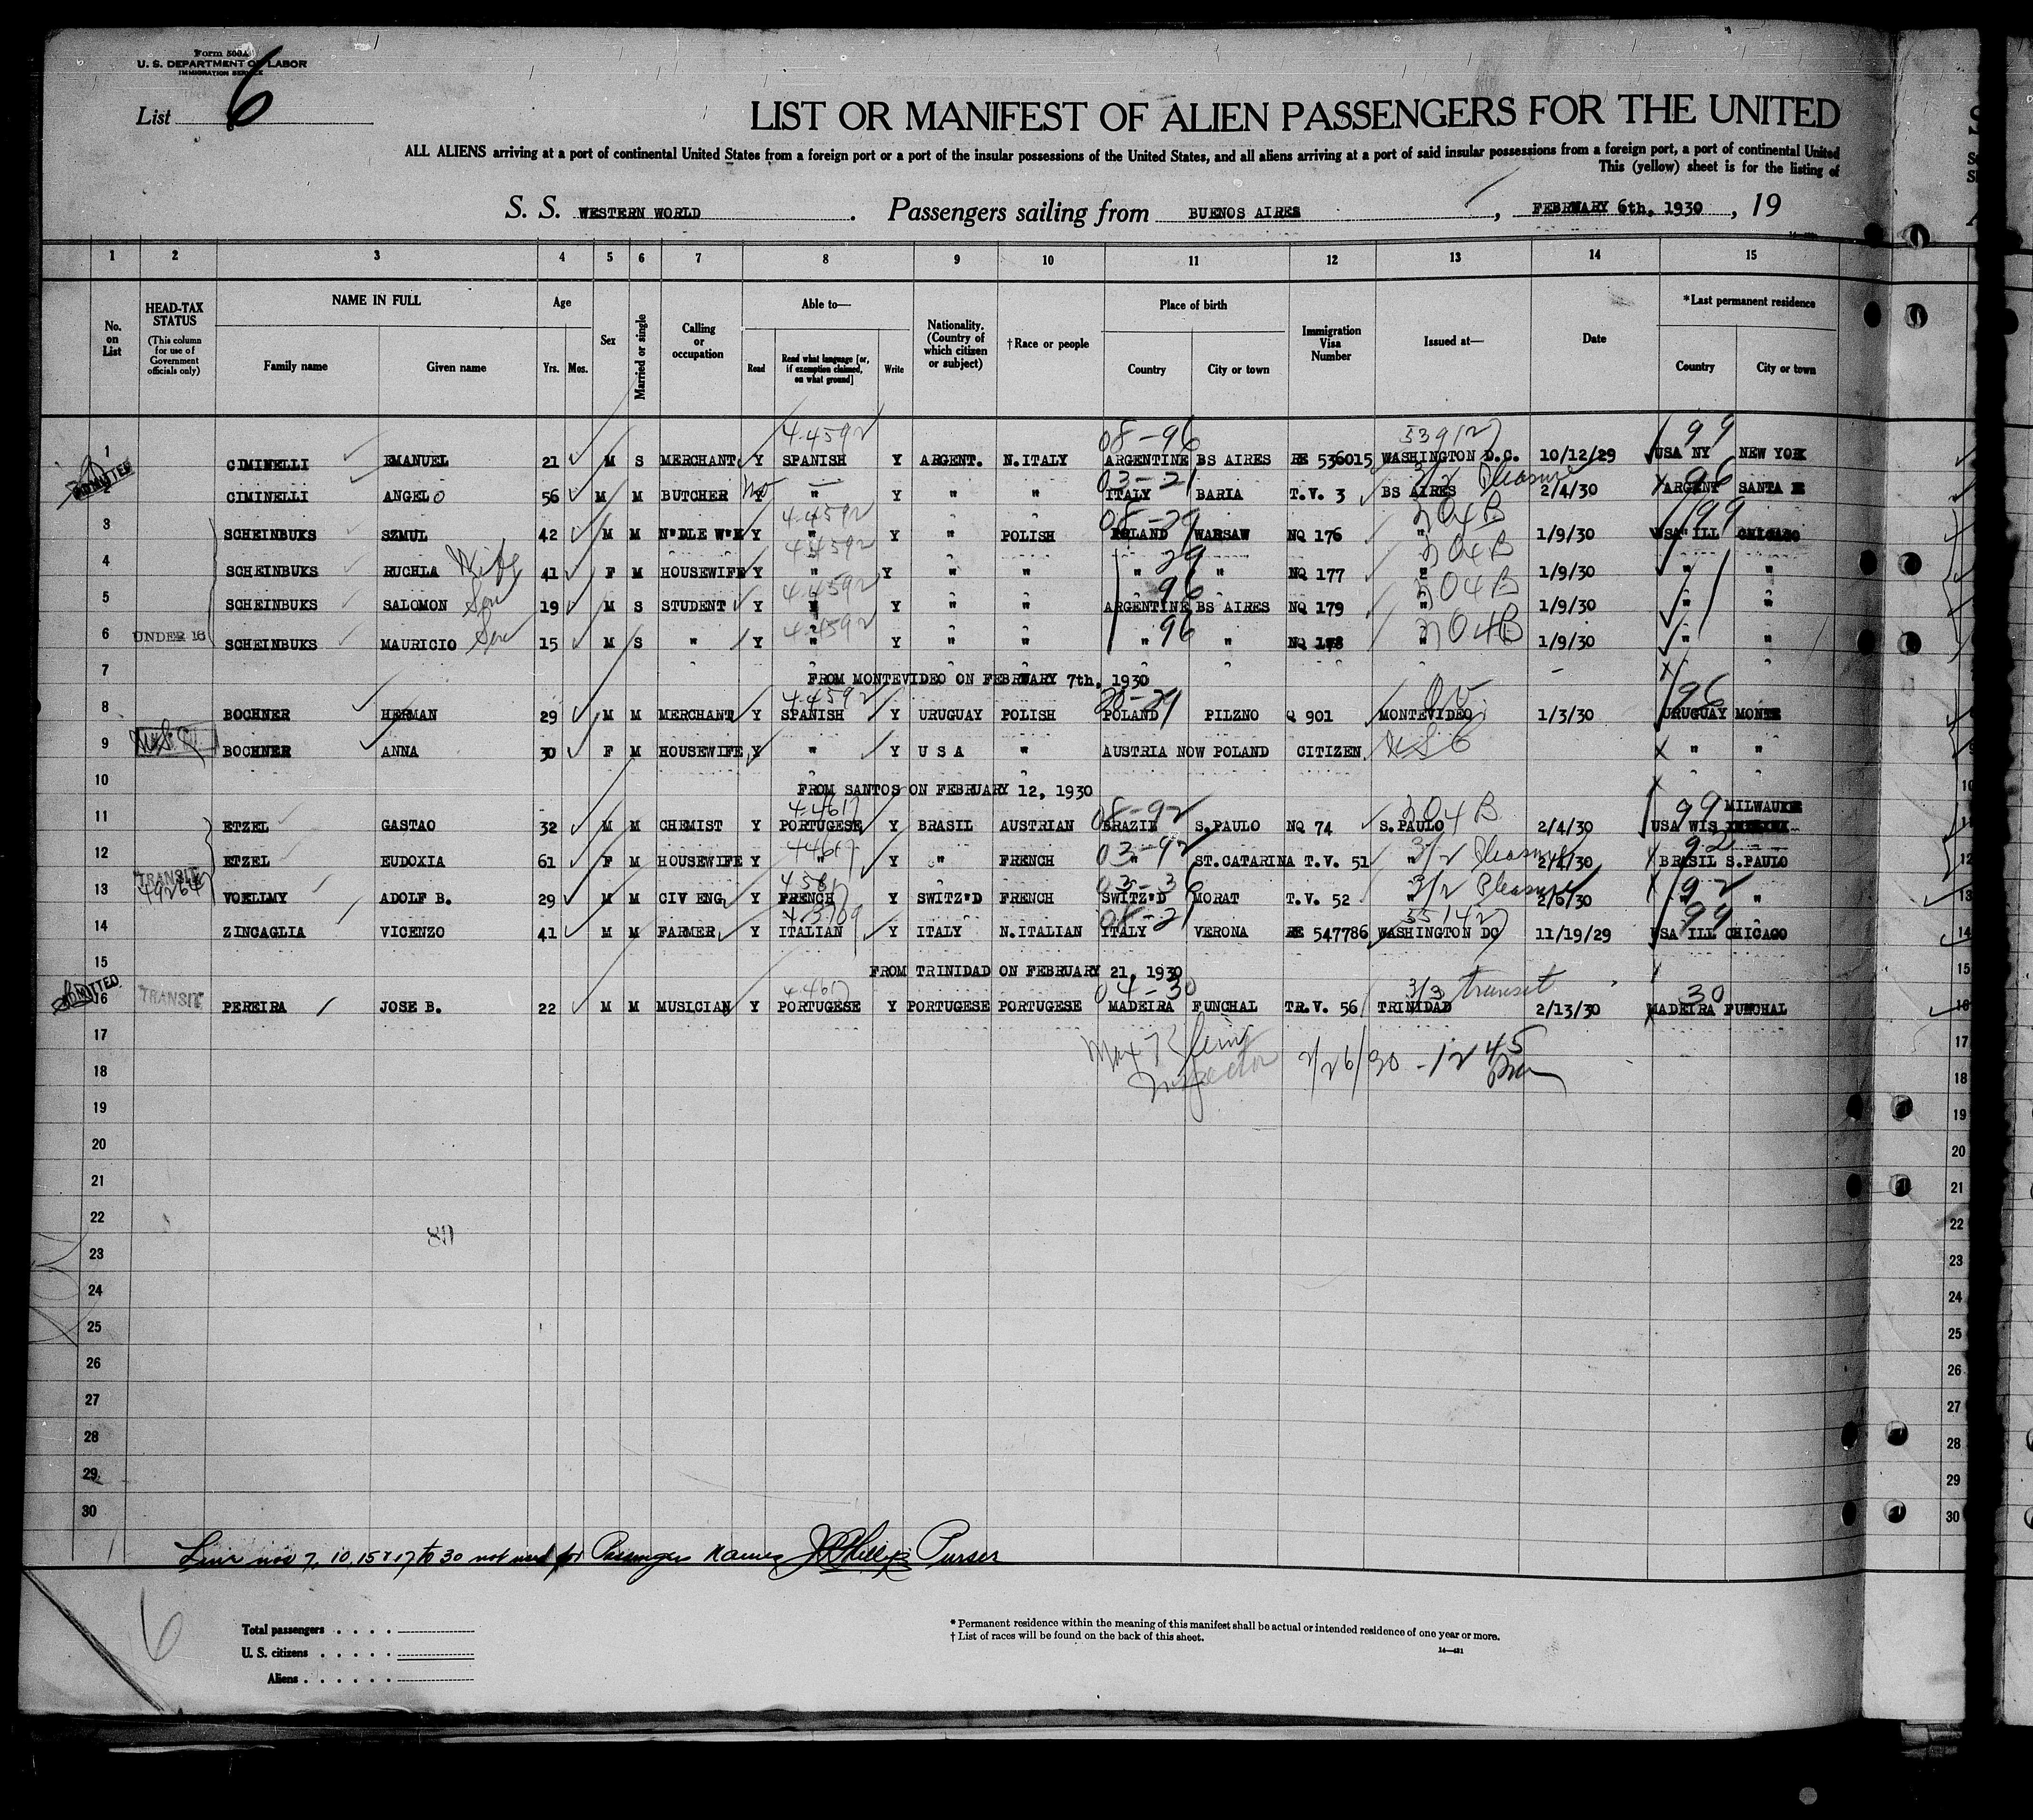 Form 500A
U. S. DEPARTMENT OF LABOR
IMMIGRATION SERVICE
List 6
LIST OR MANIFEST OF ALIEN PASSENGERS FOR THE UNITED
ALL ALIENS arriving at a port of continental United States from a foreign port or a port of the insular possessions of the United States, and all aliens arriving at a port of said insular possessions from a foreign port, a port of continental United
This (yellow) sheet is for the listing of
S. S. WESTERN WORLD . Passengers sailing from BUENOS AIRES , FEBRUARY 6th, 1930 , 19
1 2 3 4 5 6 7 8 9 10 11 12 13 14 15
No. on List
HEAD-TAX STATUS (This column for use of Government officials only)
NAME IN FULL Family name Given name
Age Yrs. Mos.
Sex
Married or single
Calling or occupation
Able to— Read Read what language [or, if exemption claimed, on what ground] Write
Nationality. (Country of which citizen or subject)
†Race or people
Place of birth Country City or town
Immigration Visa Number
Issued at—
Date
*Last permanent residence Country City or town
4-4592 08-96 539127 99
1 CIMINELLI EMANUEL 21 M S MERCHANT Y SPANISH Y ARGENT. N.ITALY ARGENTINE BS AIRES RE 536015 WASHINGTON D.C. 10/12/29 USA NY NEW YORK
ADMITTED No — 03-21 3/2 Pleasure 96
2 CIMINELLI ANGELO 56 M M BUTCHER Y " Y " " ITALY BARIA T.V. 3 BS AIRES 2/4/30 ARGENT SANTA
4-4592 08-29 204B 99
3 SCHEINBUKS SZMUL 42 M M N"DLE W"K Y " Y " POLISH POLAND WARSAW NQ 176 " 1/9/30 USA ILL CHICAGO
4-4592 29 204B
4 SCHEINBUKS RUCHLA Wife 41 F M HOUSEWIFE Y " Y " " " " NQ 177 " 1/9/30 " "
4-4592 96 204B
5 SCHEINBUKS SALOMON Son 19 M S STUDENT Y " Y " " ARGENTINE BS AIRES NQ 179 " 1/9/30 " "
4-4592 96 204B
6 UNDER 16 SCHEINBUKS MAURICIO Son 15 M S " Y " Y " " " " NQ 178 " 1/9/30 " "
7 FROM MONTEVIDEO ON FEBRUARY 7th, 1930
4-4592 96
8 BOCHNER HERMAN 29 M M MERCHANT Y SPANISH Y URUGUAY POLISH POLAND PILZNO Q 901 MONTEVIDEO 1/3/30 URUGUAY MONTE
9 BOCHNER ANNA 30 F M HOUSEWIFE Y " Y U S A " AUSTRIA NOW POLAND CITIZEN USC " "
10 FROM SANTOS ON FEBRUARY 12, 1930
4-4617 08-92 204B 99 MILWAUKE
11 ETZEL GASTAO 32 M M CHEMIST Y PORTUGESE Y BRASIL AUSTRIAN BRAZIL S.PAULO NQ 74 S.PAULO 2/4/30 USA WIS
44617 03-92 3/2 Pleasure 92
12 ETZEL EUDOXIA 61 F M HOUSEWIFE Y " Y " FRENCH " ST.CATARINA T.V. 51 " 2/4/30 BRASIL S.PAULO
TRANSIT 03-3 3/2 Pleasure 92
13 VOELLMY ADOLF B. 29 M M CIV ENG. Y FRENCH Y SWITZ"D FRENCH SWITZ"D MORAT T.V. 52 " 2/6/30 " "
08-21 551427 99
14 ZINCAGLIA VICENZO 41 M M FARMER Y ITALIAN Y ITALY N.ITALIAN ITALY VERONA RE 547786 WASHINGTON DC 11/19/29 USA ILL CHICAGO
15 FROM TRINIDAD ON FEBRUARY 21, 1930
ADMITTED 4-4617 04-30 3/3 transit 30
16 TRANSIT PEREIRA JOSE B. 22 M M MUSICIAN Y PORTUGESE Y PORTUGESE PORTUGESE MADEIRA FUNCHAL TR.V. 56 TRINIDAD 2/13/30 MADEIRA FUNCHAL
17 Max 2/26/30 - 12 45
18 Inspector
19
20
21
22
80
23
24
25
26
27
28
29
30
Line nos 7, 10, 15 & 17 to 30 not used for Passengers Names J Phillips Purser
6
Total passengers . . . .
U. S. citizens . . . . .
Aliens . . . . .
* Permanent residence within the meaning of this manifest shall be actual or intended residence of one year or more.
† List of races will be found on the back of this sheet.
14—421